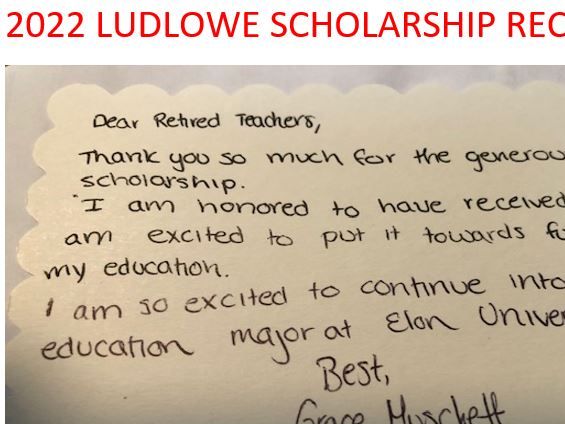 2022 LUDLOWE SCHOLARSHIP REC
Dear Retired Teachers,
Thank you so much for the generou
scholarship.
I am honored to have received
am excited to put it towards fu
my education.
I am so excited to continue into
education major at Elon Univer
Best,
Grace Muschett